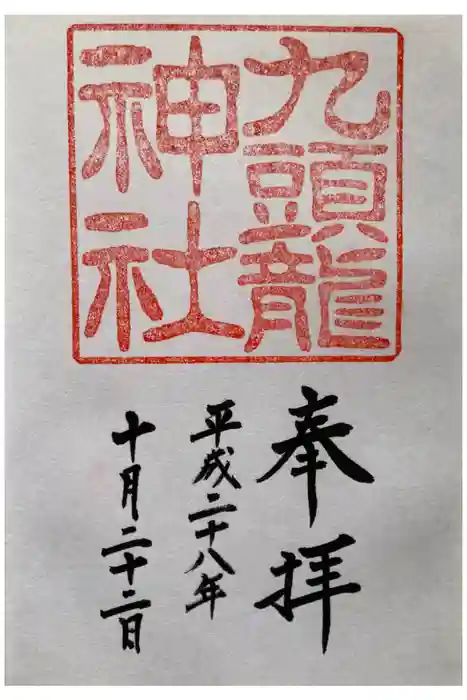 九頭龍
神社
奉拝
平成二十八年
十月二十二日